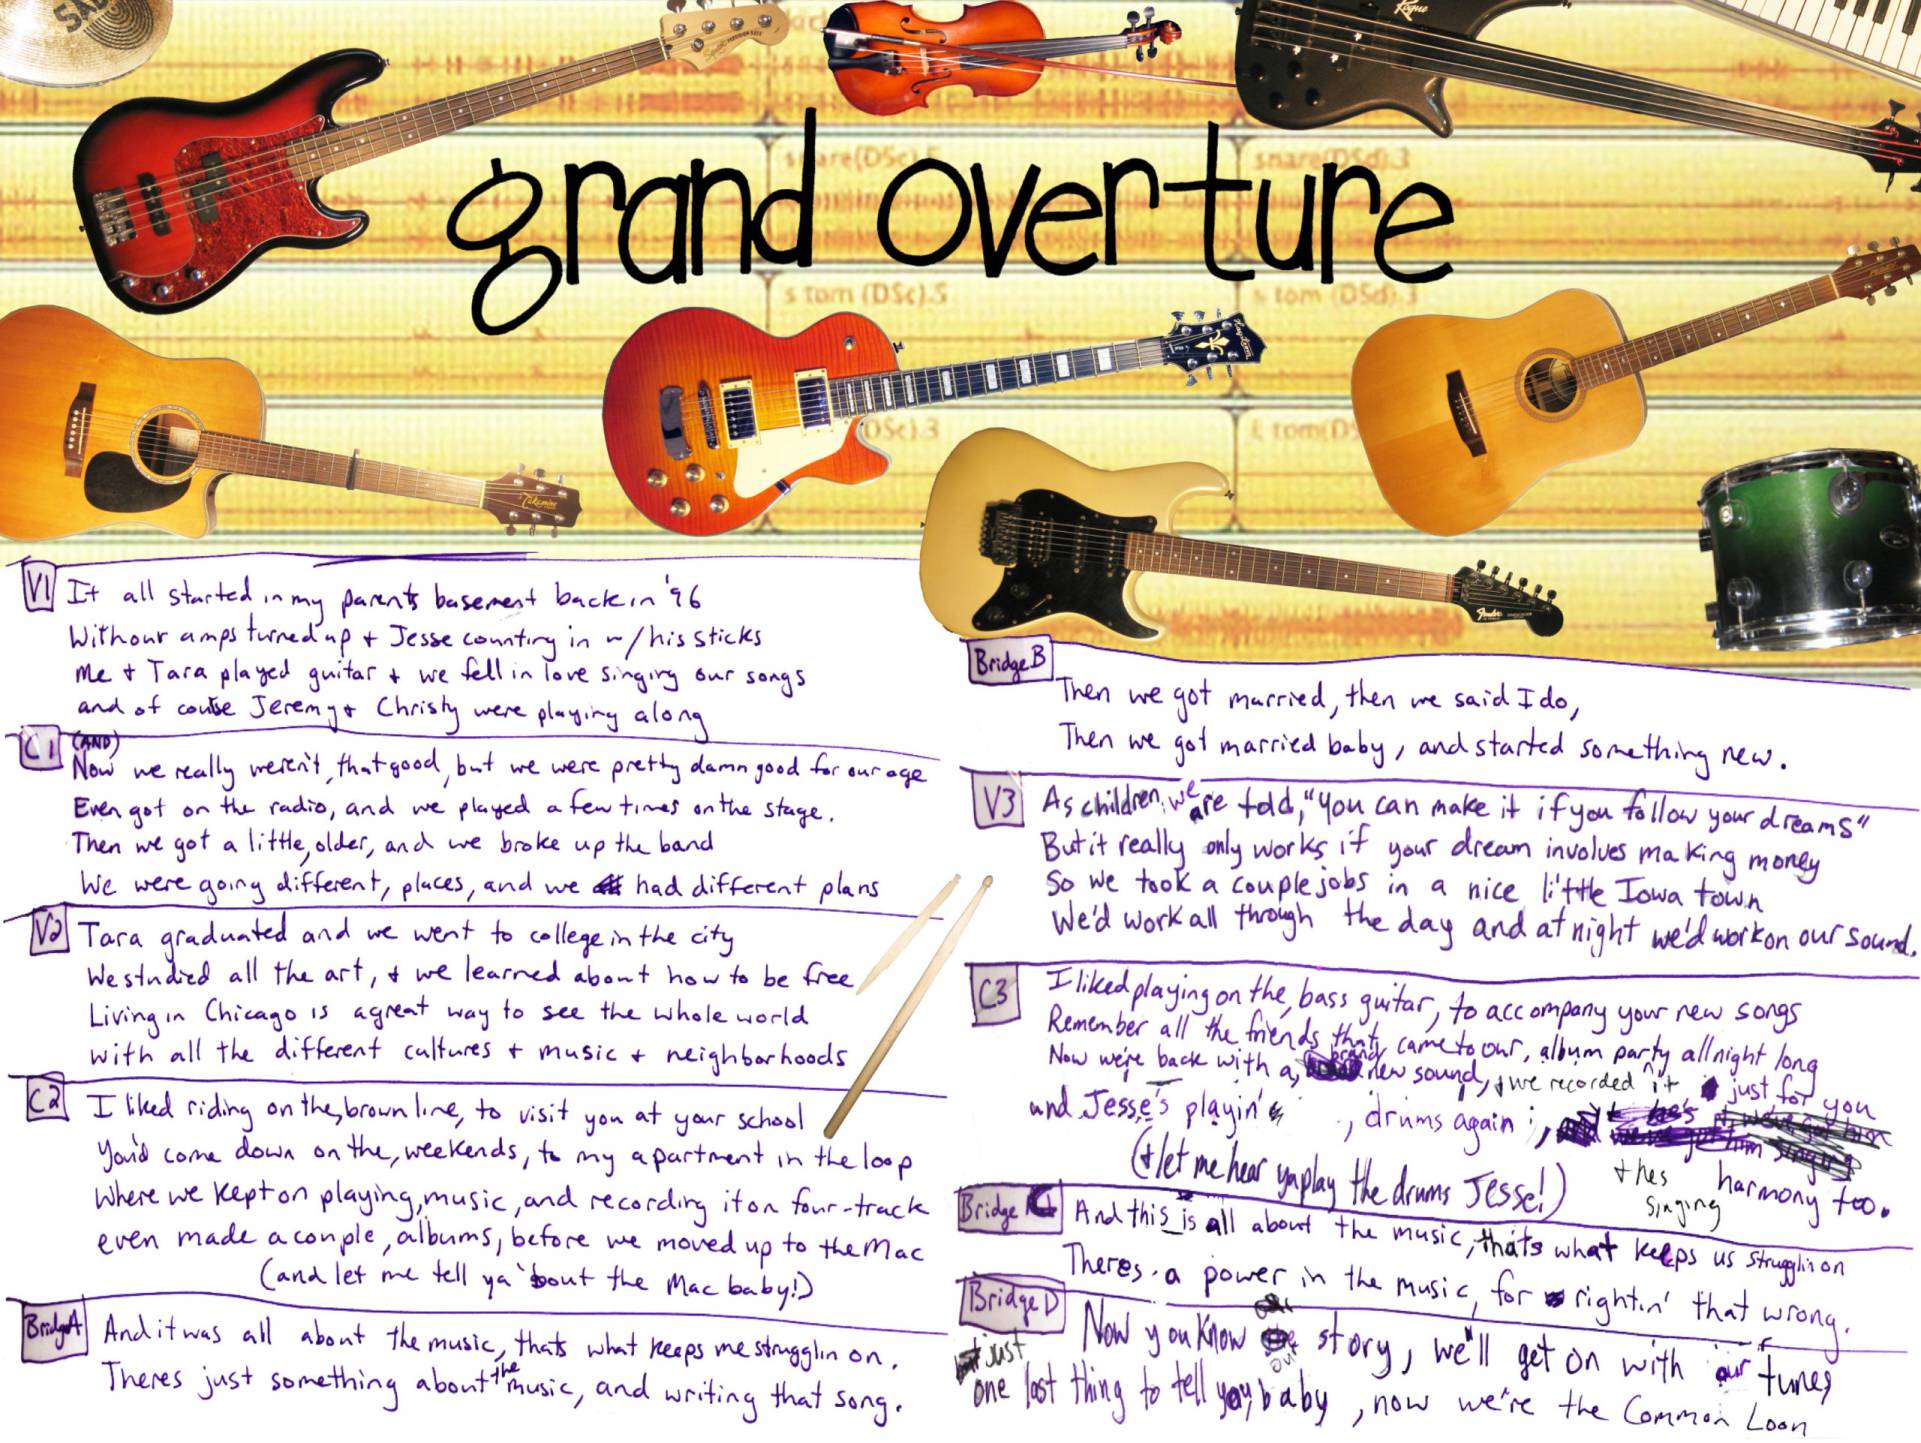 SAB
Rogue
Squier PRECISION BASS
snare(DSc).5
snare(DSd).3
grand overture
s tom (DSc).5
s tom (DSd).3
DSc).3
tom(DS
Takamine
Fender
V1
It all started in my parents basement back in '96
With our amps turned up + Jesse counting in w/his sticks
Me + Tara played guitar + we fell in love singing our songs
and of course Jeremy + Christy were playing along
C1
(AND)
Now we really weren't, that good, but we were pretty damn good for our age
Even got on the radio, and we played a few times on the stage.
Then we got a little, older, and we broke up the band
We were going different, places, and we had different plans
V2
Tara graduated and we went to college in the city
We studied all the art, + we learned about how to be free
Living in Chicago is a great way to see the whole world
with all the different cultures + music + neighborhoods
C2
I liked riding on the, brown line, to visit you at your school
You'd come down on the, weekends, to my apartment in the loop
Where we kept on playing, music, and recording it on four-track
even made a couple, albums, before we moved up to the Mac
(and let me tell ya 'bout the Mac baby!)
Bridge A
And it was all about the music, thats what keeps me strugglin on.
Theres just something about the music, and writing that song.
Bridge B
Then we got married, then we said I do,
Then we got married baby, and started something new.
V3
As children, we are told, "you can make it if you follow your dreams"
But it really only works if your dream involves making money
So we took a couple jobs in a nice little Iowa town
We'd work all through the day and at night we'd work on our sound.
C3
I liked playing on the, bass guitar, to accompany your new songs
Remember all the friends that, came to our, album party all night long
Now we're back with a, brand new sound, + we recorded it just for you
and Jesse's playin', drums again, + hes singing harmony too.
(+ let me hear ya play the drums Jesse!)
Bridge C
And this is all about the music, thats what keeps us strugglin on
Theres a power in the music, for rightin' that wrong.
Bridge D
Now you know our story, we'll get on with our tunes
just one last thing to tell you, baby, now we're the Common Loon